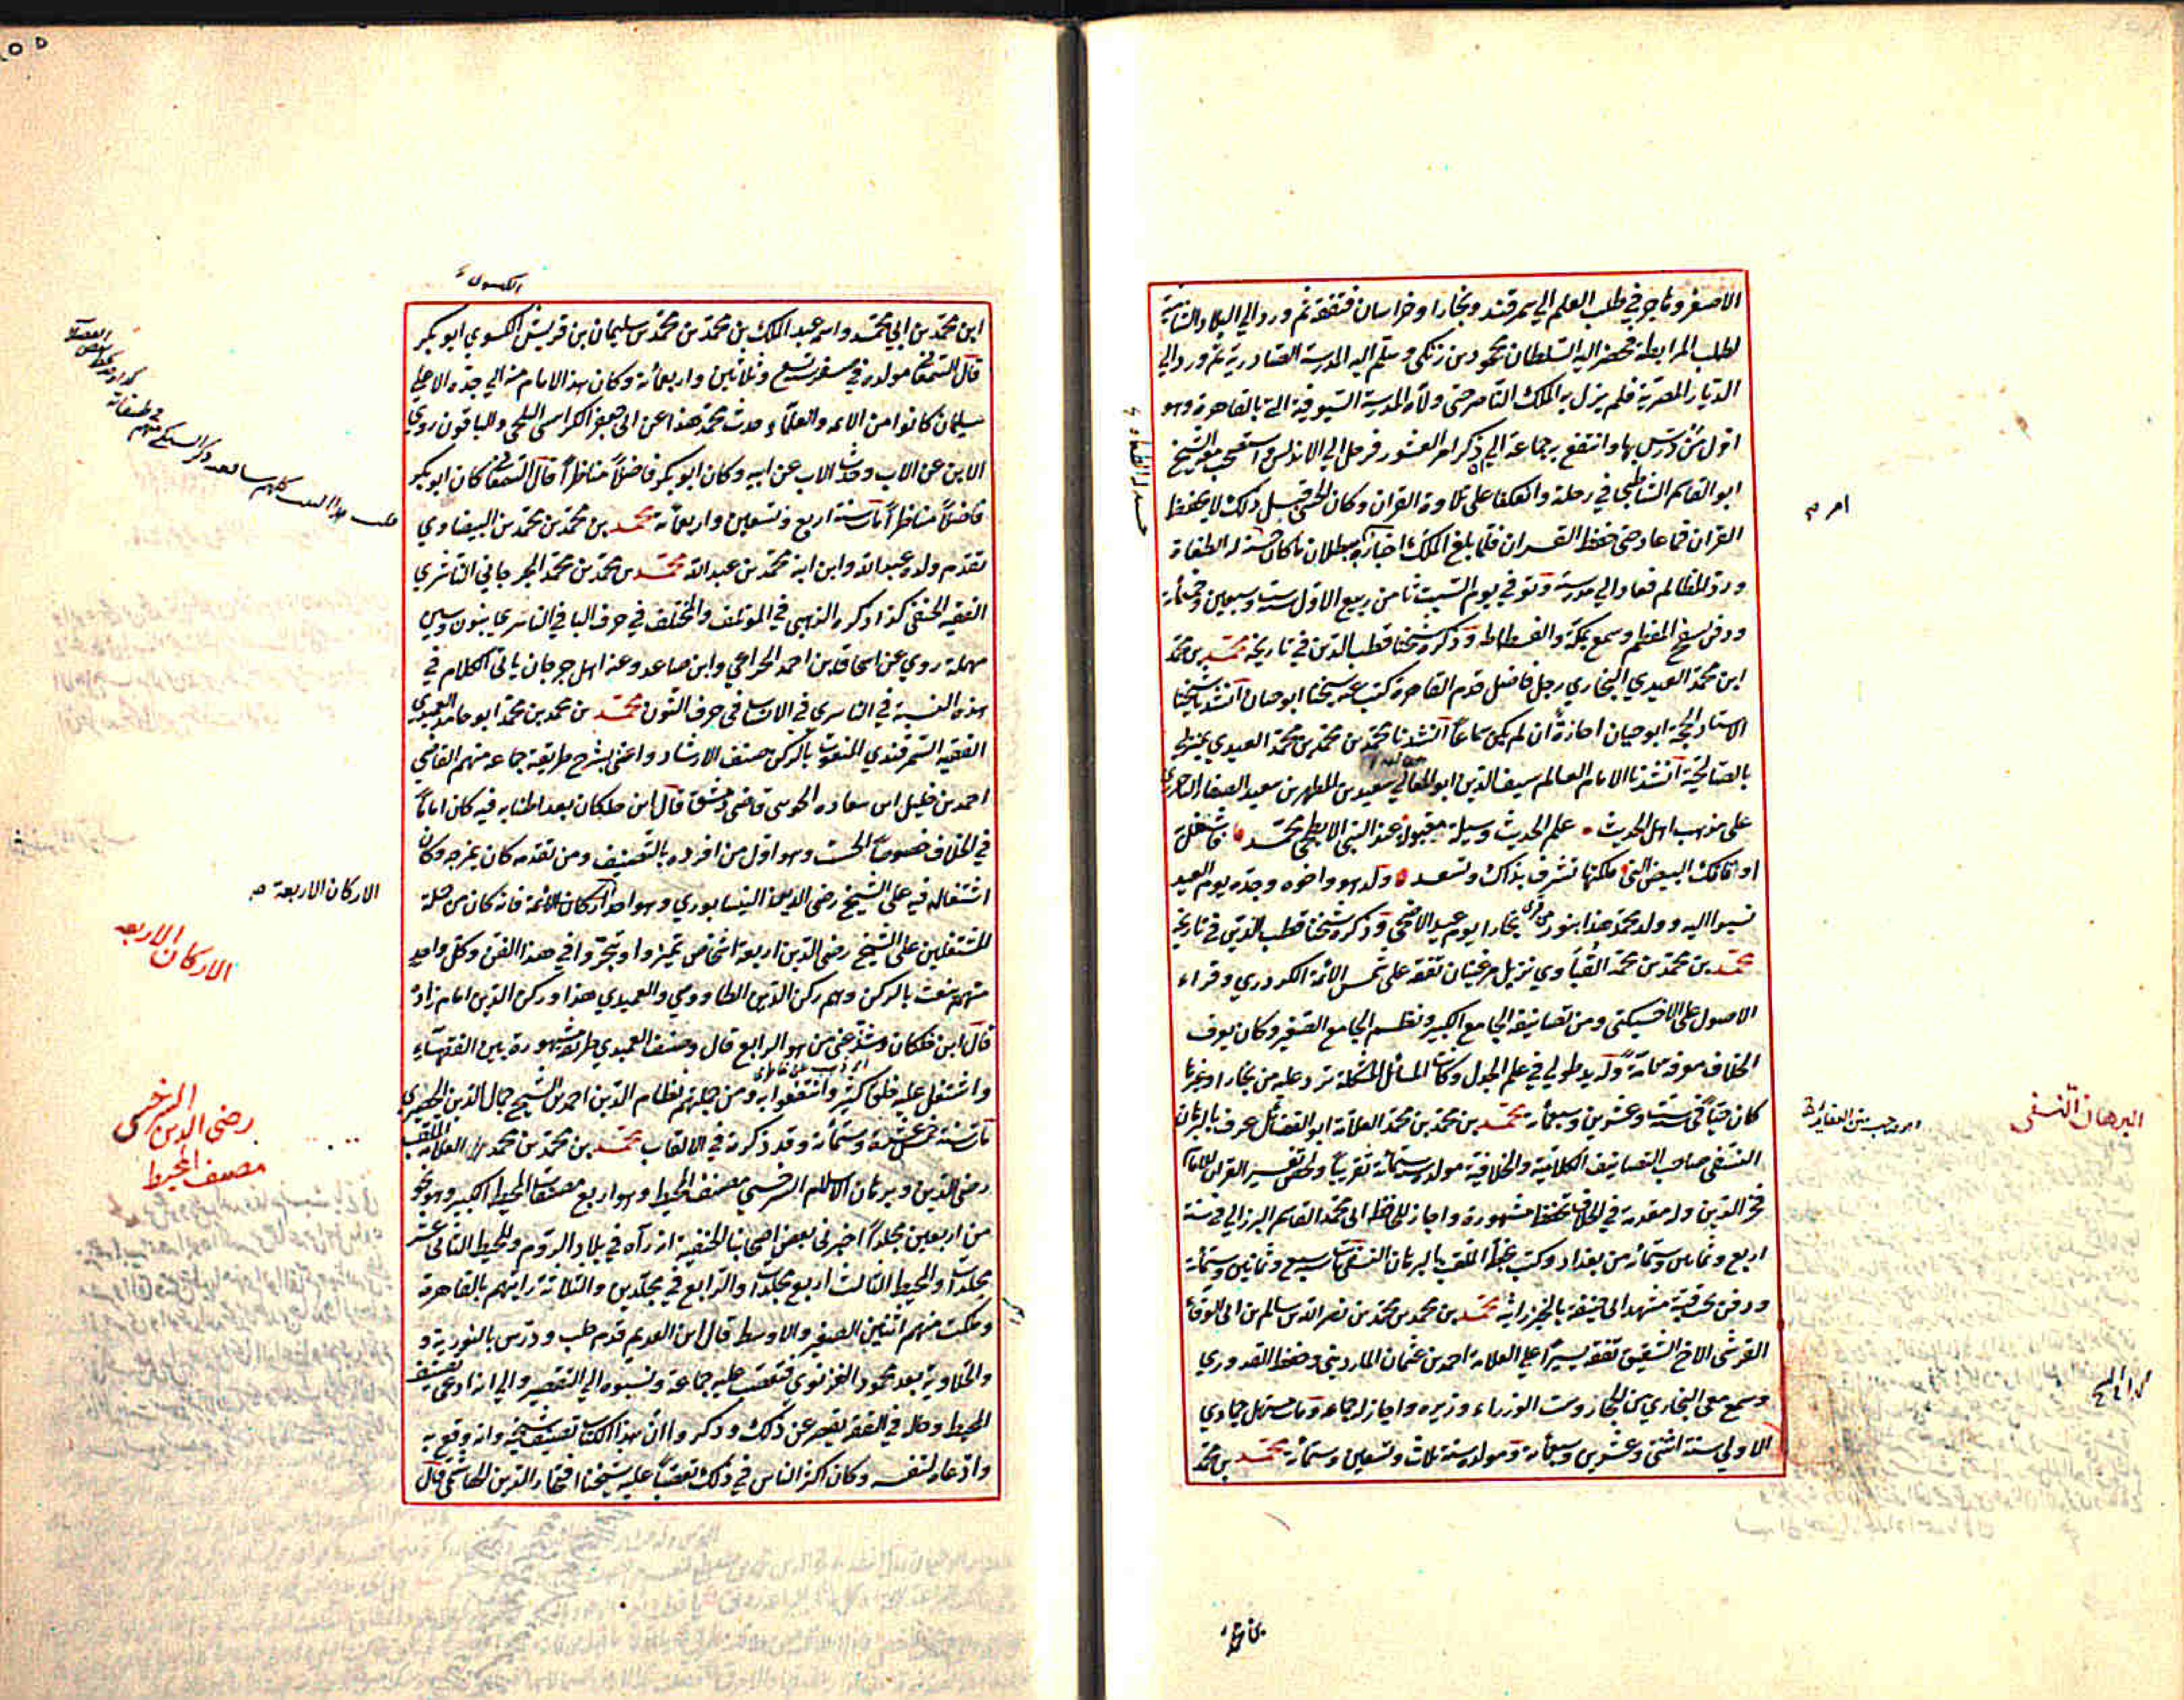 الاصغر وهاجر في طلب العلم الي سمرقند وبخارا وخراسان فتفقه ثم ورد الي البلاد الشامية
لطلب المرابطة فحضر اليه السلطان محمود بن زنكي وسلم اليه المدرسة الصادرية ثم ورد الي
الديار المصرية فلم يزل به الملك الناصر حتى ولاه المدرسة السيوفية التي بالقاهرة وهو
اول من درس بها وانتفع به جماعة الي ان ذكر امر العشور فرحل الي الاندلس واستصحب معه الشيخ
ابو القاسم الشاطبي في رحلته واتعكفا على تلاوة القران وكان الحنفي قبل ذلك لا يحفظ
القران فما عاد حتى حفظ القران فلما بلغ الملك اخباره ببطلان ما كان حسنه له الطغاة
ورد المظالم فعاد الي مدرسته وتوفي يوم السبت ثامن ربيع الاول سنة ست وسبعين وخمسمائة
ودفن بسفح المقطم وسمع بمكة والفسطاط وذكره شيخنا قطب الدين في تاريخه محمد بن محمد
ابن محمد العيدي البخاري رجل فاضل قدم القاهرة كتب عنه شيخنا ابو حيان انشدنا شيخنا
الاستاد الحجة ابو حيان اجازة ان لم يكن سماعا انشدنا محمد بن محمد بن محمد العيدي بمنزله
بالصالحية انشدنا الامام العالم سيف الدين ابو المعالي سعيد بن المطهر بن سعيد الصفار الباخرزي
على مذهب اهل الحديث علم الحديث وسيلة مقبولة عند النبي الابطحي محمد فاشغل
اوقاتك البيض التي ملكتها تشرف بذاك وتسعد ولد هو واخوه وجده يوم العيد
نسبوا اليه وولد محمد هذا بنور من قرى بخارا يوم عيد الاضحى وذكره شيخنا قطب الدين في تاريخه
محمد بن محمد بن محمد القباوي نزيل مرغينان تفقه على شمس الائمة الكردري وقراء
الاصول على الاخسيكتي ومن تصانيفه الجامع الكبير ونظم الجامع الصغير وكان يعرف
الخلاف معرفة تامة وله يد طولي في علم الجدل وكانت المسائل المشكلة ترد عليه من بخارا وغيرها
كان حيا في سنة ست وعشرين وسبعمائة محمد بن محمد بن محمد العلامة ابو الفضائل عرف بالبرهان
النسفي صاحب التصانيف الكلامية والخلافية مولده سنة ستمائة تقريبا ولخص تفسير القران للامام
فخر الدين وله مقدمة في الخلاف تحفظ مشهورة واجاز للحافظ ابي محمد القاسم البرزالي في سنة
اربع وثمانين وستمائة من بغداد وكتب بخطه الملقب بالبرهان النسفي مات سنة سبع وثمانين وستمائة
ودفن تحت قبة مشهد ابي حنيفة بالخيزرانية محمد بن محمد بن محمد بن نصر الله بن سالم بن ابي الوفاء
القرشي الاخ الشقيق تفقه يسيرا علي العلامة احمد بن عثمان المارديني وحفظ القدوري
وسمع معي البخاري من الحجار وست الوزراء وزيره واجاز له جماعة ومات مستهل جمادي
الاولي سنة اثنتي وعشرين وسبعمائة ومولده سنة ثلاث وتسعين وستمائة محمد بن محمد
امر
البرهان النسفي
ابن محمد
الكسوي
ابن محمد بن ابي محمد واسمه عبد الملك بن محمد بن محمد بن سليمان بن قريش الكسوي ابو بكر
قال السمعاني مولده في صفر تسع وثلاثين واربعمائة وكان هذا الامام من ابي جده الاعلي
سليمان كانوا من الائمة والعلماء حدث محمد هذا عن ابي جعفر الكراسي البلخي والباقون روي
الابن عن الاب وحدث الاب عن ابيه وكان ابو بكر فاضلا مناظرا قال السمعاني كان ابو بكر
فاضلا مناظرا مات سنة اربع وتسعين واربعمائة محمد بن محمد بن محمد بن البيضاوي
تقدم ولده عبد الله وابن ابنه محمد بن عبد الله محمد بن محمد بن محمد الجرجاني الناشري
الفقيه الحنفي كذا ذكره الذهبي في المؤتلف والمختلف في حرف البا في الناسري بنون وسين
مهملة روي عن اسحاق بن احمد الخزاعي وابن صاعد وعنه اهل جرجان ياتي الكلام في
هذه النسبة في الناسري في الانساب في حرف النون محمد بن محمد بن محمد ابو حامد العميدي
الفقيه السمرقندي المنعوت بالركن مصنف الارشاد واعتنى بشرح طريقته جماعة منهم القاضي
احمد بن خليل ابن سعاده الخوي قاضي دمشق قال ابن خلكان بعد اطنابه فيه كان اماما
في الخلاف خصوصا الجست وهو اول من افرده بالتصنيف ومن تقدمه كان يمزجه وكان
اشتغاله فيه على الشيخ رضي الدين النيسابوري وهو احد اركان الائمة فانه كان من جملة
المشتغلين على الشيخ رضي الدين اربعة اشخاص تميزوا وتبحروا في هذا الفن وكل واحد
منهم ينعت بالركن وهم ركن الدين الطاووسي والعميدي هذا وركن الدين امام زاده
قال ابن خلكان وشذ عني من هو الرابع قال وصنف العميدي طريقة مشهورة بين الفقهاء
واشتغل عليه خلق كثير وانتفعوا به ومن جملتهم نظام الدين احمد بن الشيخ جمال الدين الحصيري
مات سنة خمس عشرة وستمائة وقد ذكرته في الالقاب محمد بن محمد بن محمد العلامة الملقب
رضي الدين وبرهان الاسلام السرخسي مصنف المحيط وهو اربع مصنفات المحيط الكبير وهو نحو
من اربعين مجلدا اخبرني بعض اصحابنا الحنفية انه رآه في بلاد الروم والمحيط الثاني عشر
مجلدات والمحيط الثالث اربع مجلدات والرابع في مجلدين والثلاثة رايتهم بالقاهرة
وملكت منهم اثنين الصغير والاوسط قال ابن العديم قدم حلب ودرس بالنورية و
والحلاوية بعد محمود الغزنوي فتعصب عليه جماعة ونسبوه الي التقصير والي انه ادعى تصنيف
المحيط وحاله في الفقه يقصر عن ذلك وذكروا ان هذا الكتاب تصنيف شيخه وانه وقع به
وادعاه لنفسه وكان اكثر الناس في ذلك تعصبا عليه شيخنا افتخار الدين الهاشمي قال
الاركان الاربعة صح
الاركان الاربعه
رضى الدين السرخسى
مصنف المحيط